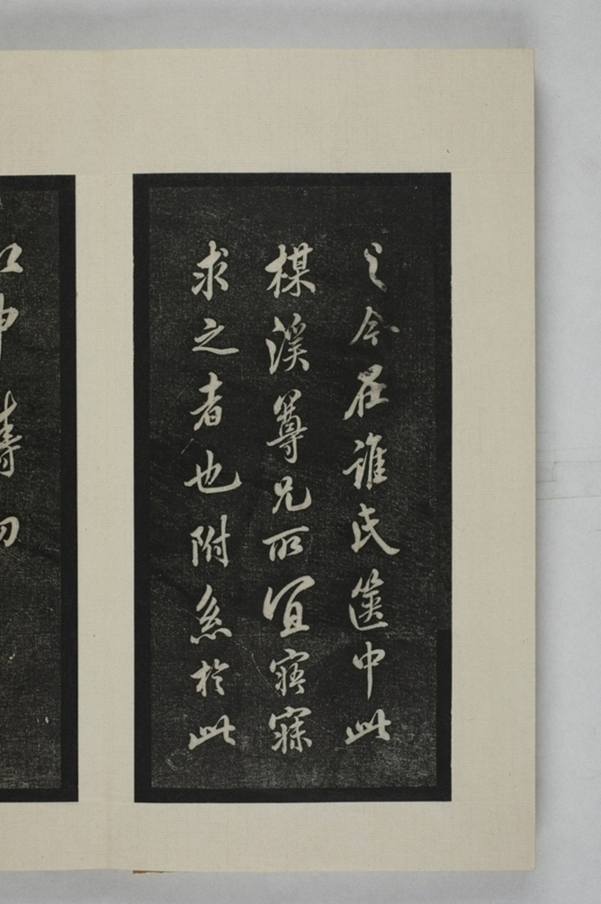 今在誰氏篋中此
楳溪尊兄所宜寤寐
求之者也附系於此